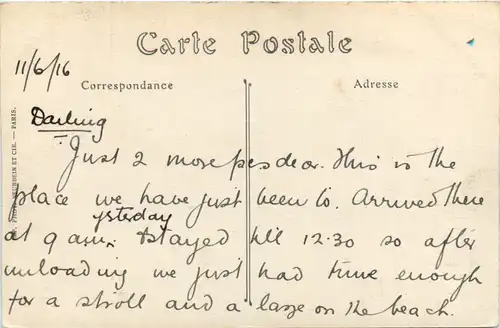 Carte Postale
11/6/16
Correspondance
Adresse
Darling
Just 2 more pcs dear. This is the
place we have just been to. Arrived there
ysterday
at 9 am. & stayed till 12.30 so after
unloading we just had time enough
for a stroll and a laze on the beach.
NEURDEIN ET CIE. — PARIS.